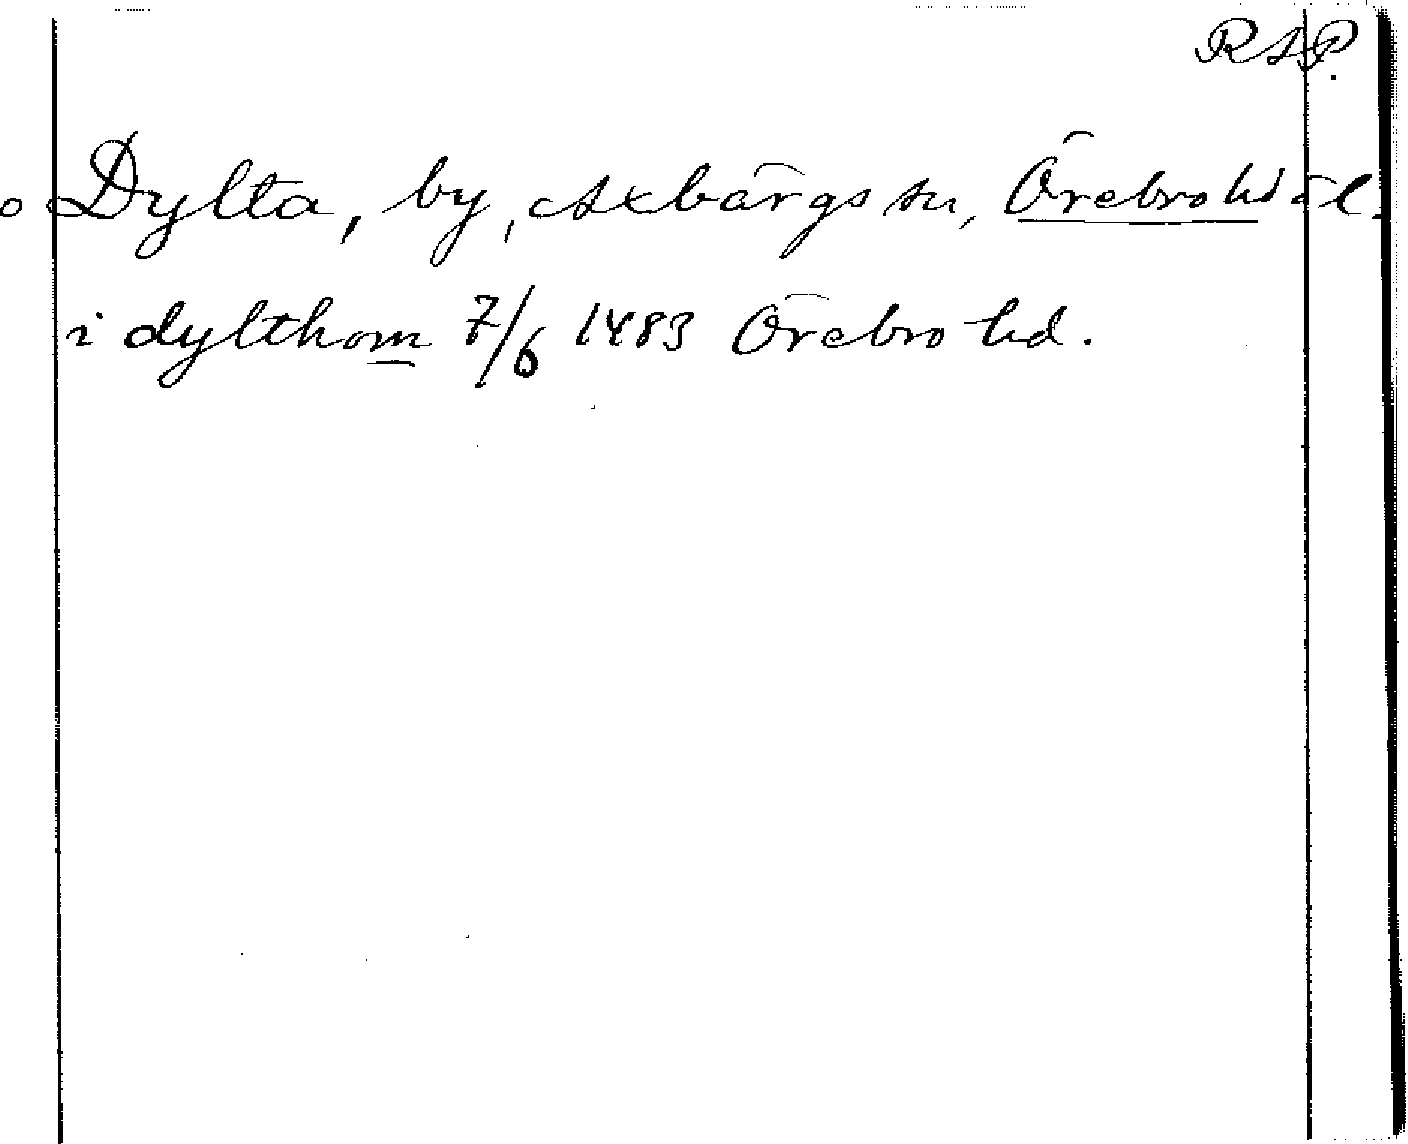 RAP.
o Dylta, by, Axbärgs sn, Örebro hd öl.
i dylthom 7/6 1483 Örebro hd.